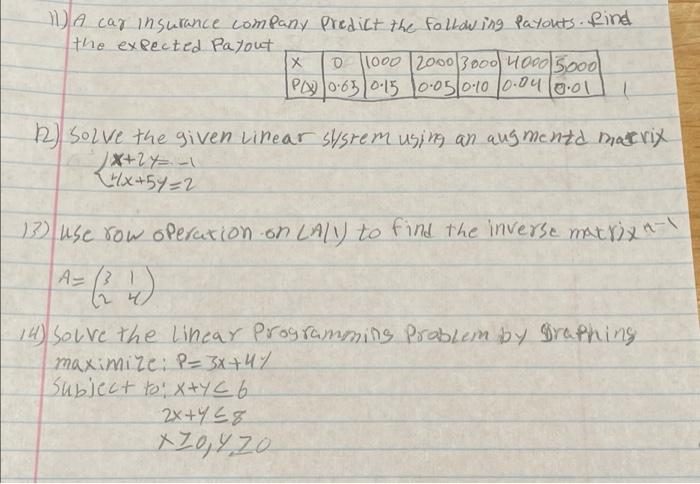 11) A car insurance company Predict the Following Payouts. find
the expected Payout
X 0 1000 2000 3000 4000 5000
P(x) 0.65 0.15 0.05 0.10 0.04 0.01
12) Solve the given Linear System using an augmentd matrix
x+2y=-1
4x+5y=2
13) use row operation on (A|1) to find the inverse matrix A-1
A= (3 1
2 4)
14) Solve the Linear Programming Problem by Graphing
maximize: P=3x+4y
Subject to: x+y≤6
2x+y≤8
x≥0, y≥0